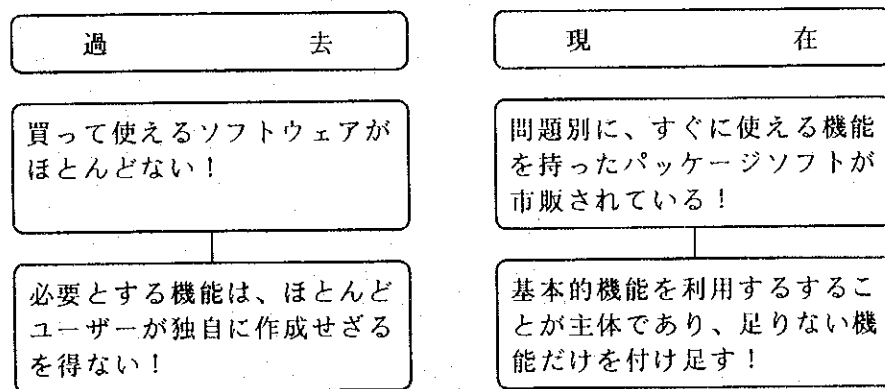 過去
買って使えるソフトウェアが
ほとんどない！
必要とする機能は、ほとんど
ユーザーが独自に作成せざる
を得ない！
現在
問題別に、すぐに使える機能
を持ったパッケージソフトが
市販されている！
基本的機能を利用するするこ
とが主体であり、足りない機
能だけを付け足す！